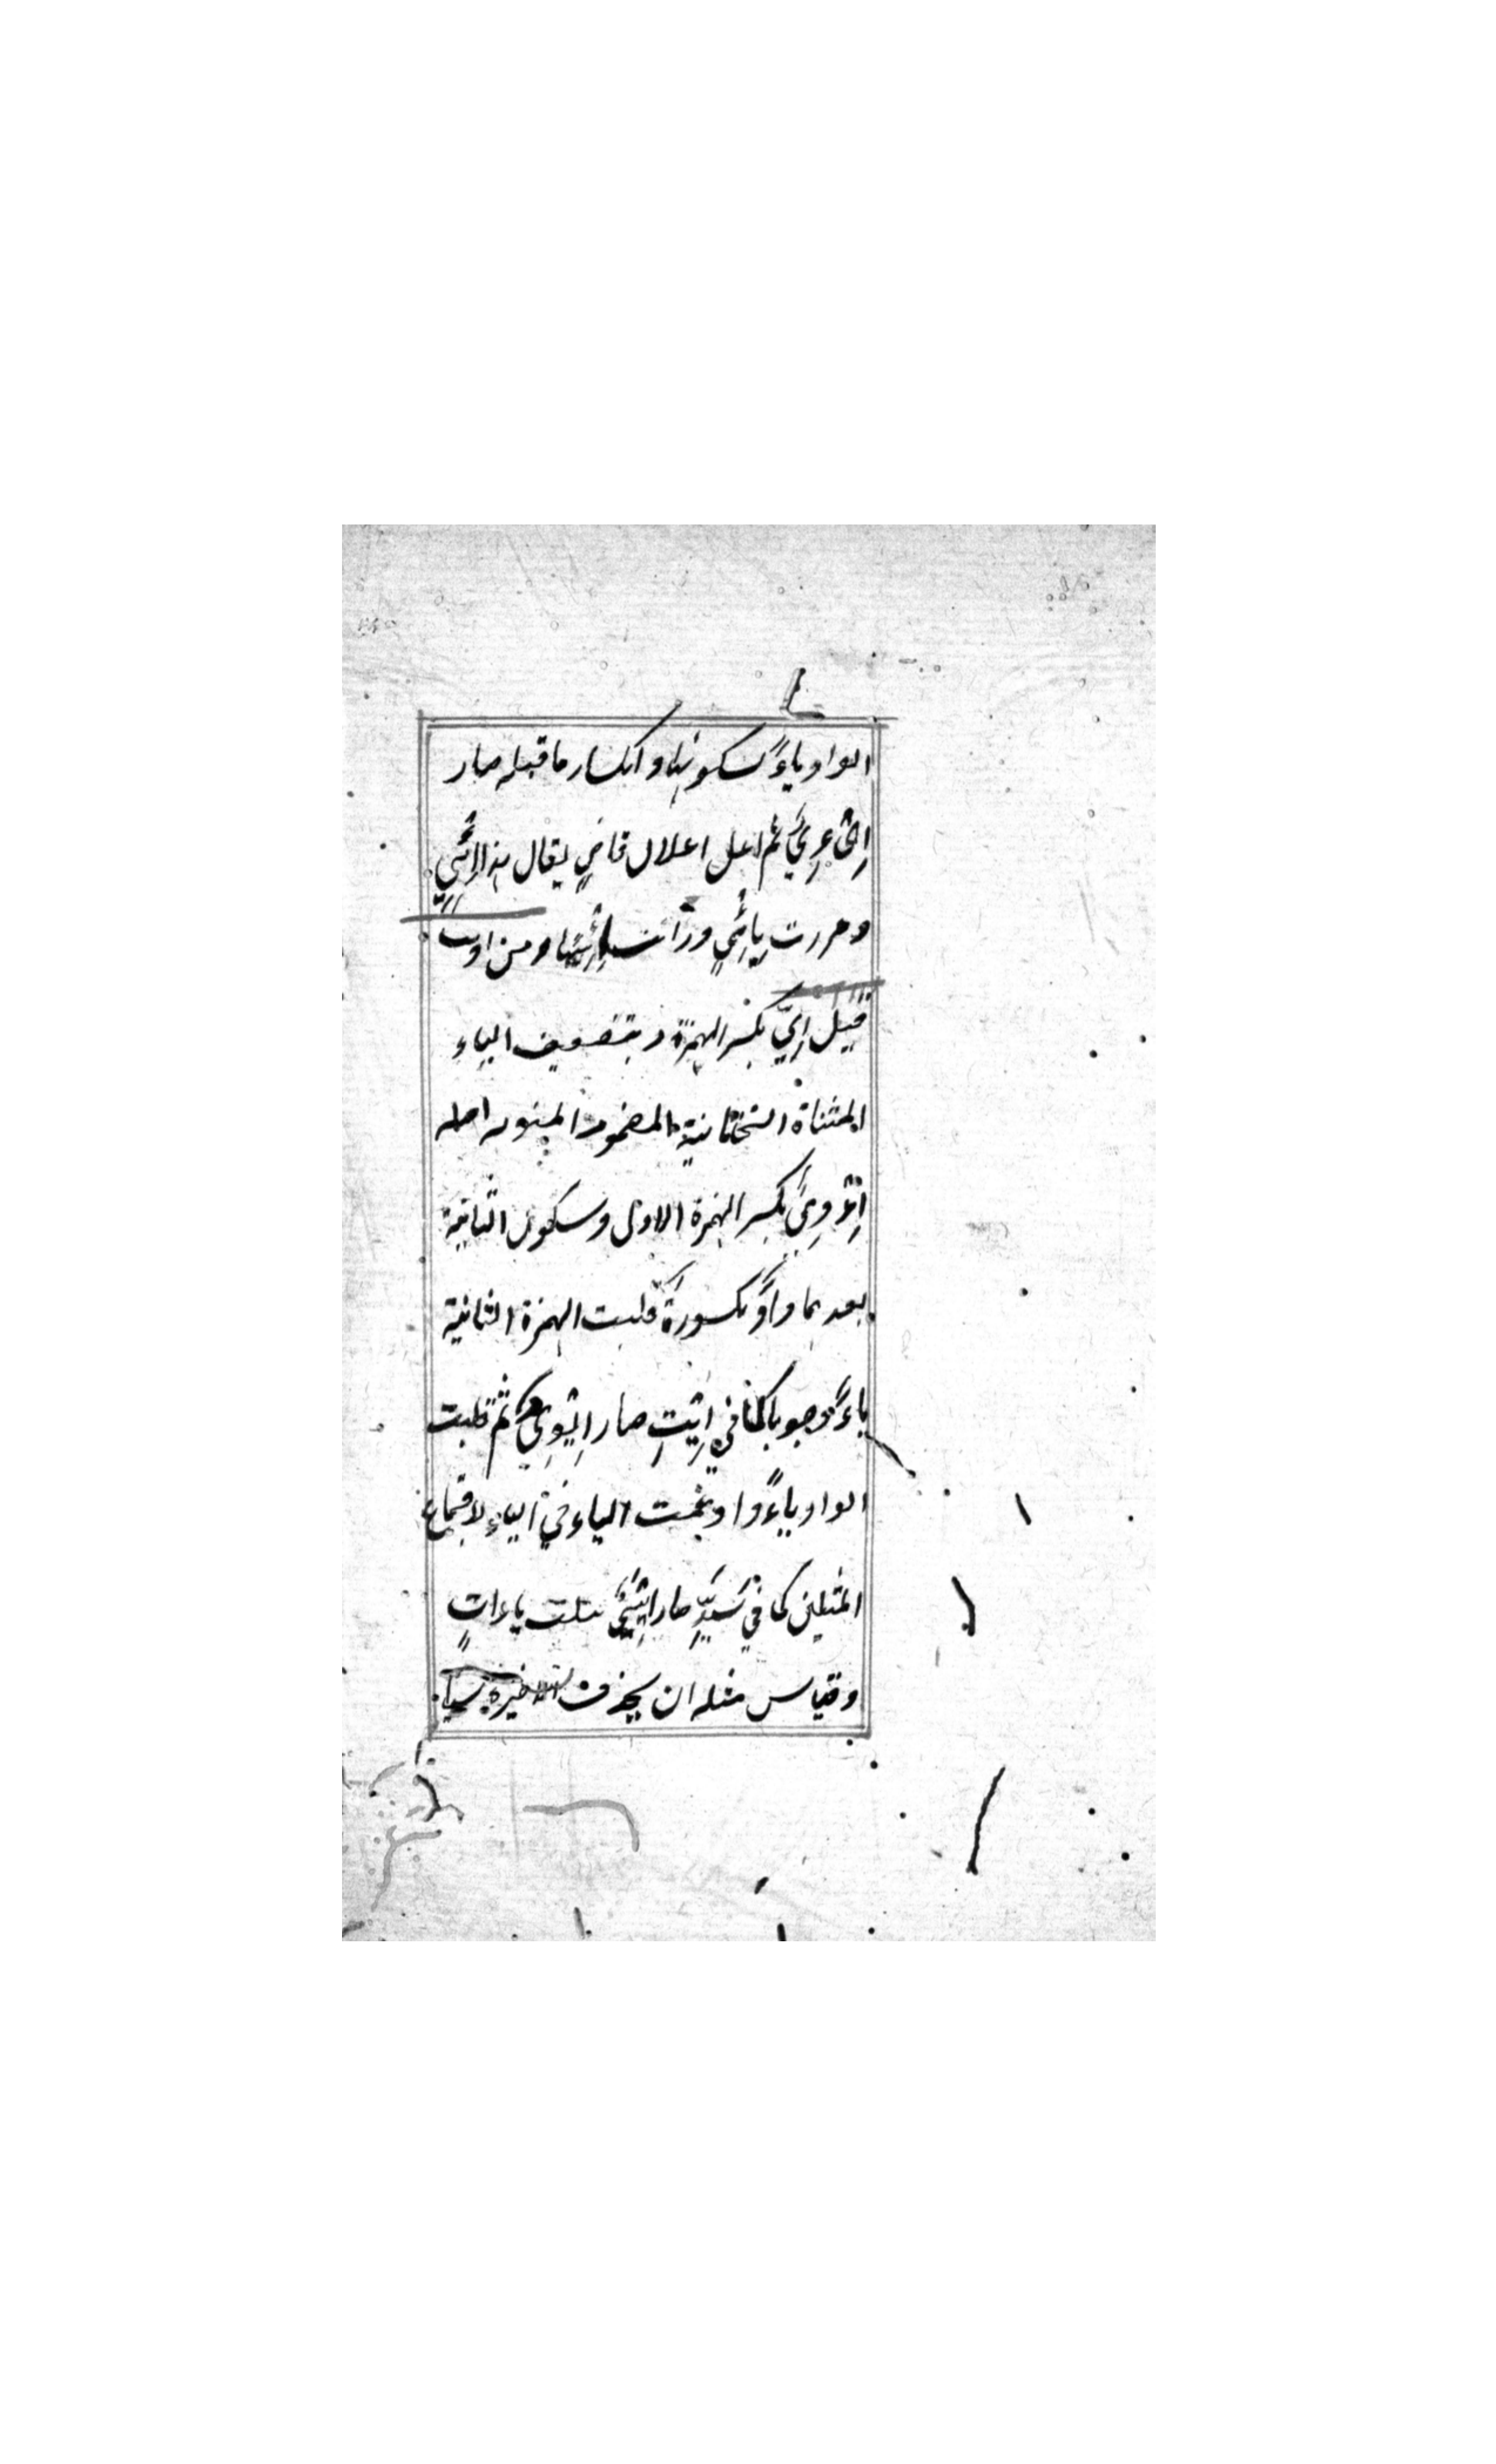 الواو ياءً لسكونها وانكسار ما قبله صار
ثم اعل اعلال قاضٍ يقال هذا إيءٍ
ومررت بإيءٍ ورأيت ومن اويت
قيل إيٌّ بكسر الهمزة وبتضعيف الياء
المثناة التحتانية المضموم المنونه اصله
إئوِيٌ بكسر الهمزة الاولى وسكون الثانية
بعدهما واوٌ مكسورةٌ قلبت الهمزة الثانية
ياءً وجوبا كما في إيتِ صار إيوِيٌ ثم قلبت
الواو ياءً وادغمت الياء في الياءِ لاجتماع
المثلين كما في سَيِّدٍ صار إيِّيٌ بثلث ياءاتٍ
وقياس مثله ان يحذف الاخيرة نسيا